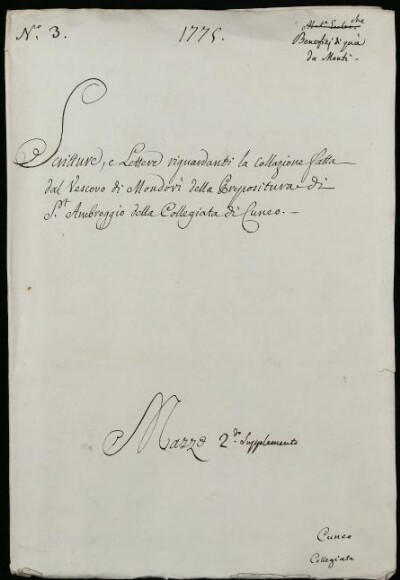 N.º 3.
1775.
Mat.ᵉ Eccles.che
Benefizj di quà
da Monti -
Scritture, e Lettere riguardanti la collazione fatta
dal Vescovo di Mondovì della Prepositura di
S.t Ambroggio della Collegiata di Cuneo. -
Mazzo 2.do Supplemento
Cuneo
Collegiata